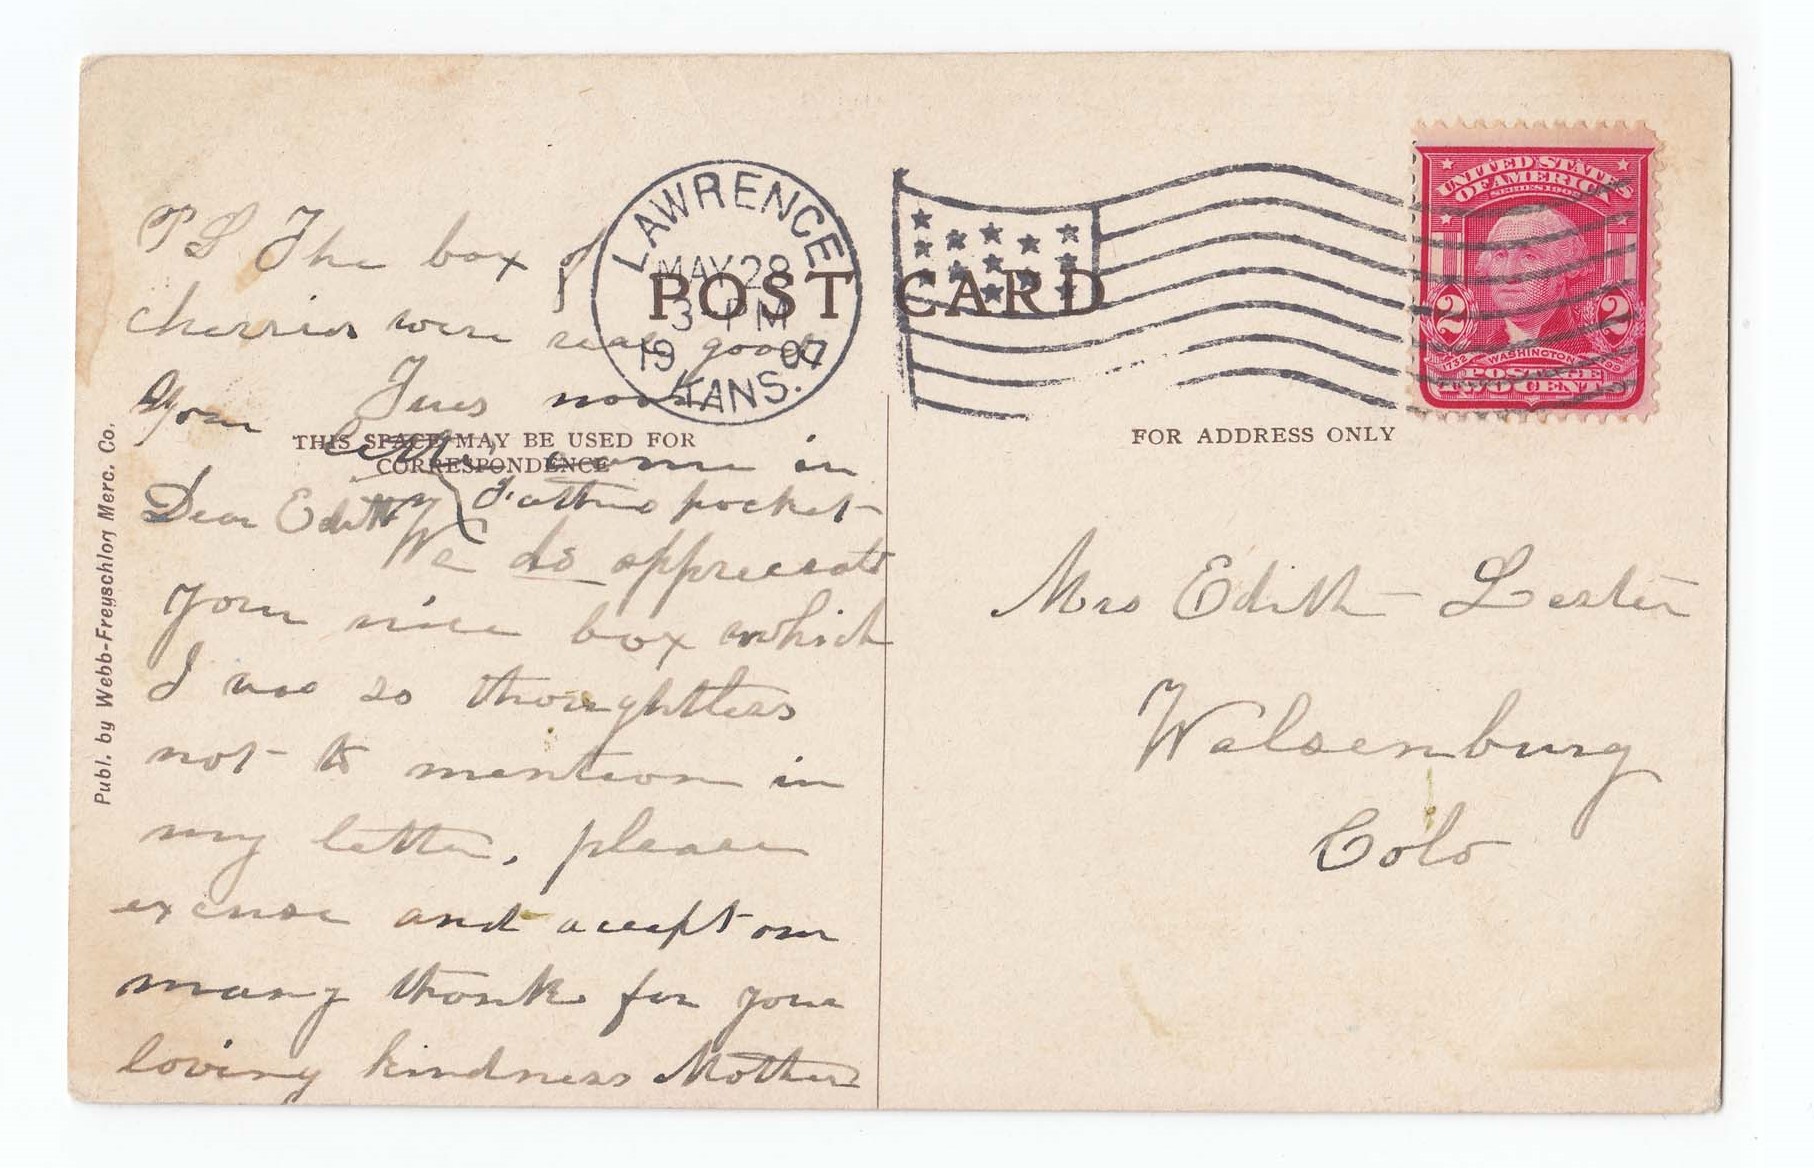 LAWRENCE
MAY 28
3 PM
1907
KANS.
POST CARD
UNITED STATES
OF AMERICA
SERIES 1902
2 2
1732 WASHINGTON 1799
POSTAGE
TWO CENTS
THIS SPACE MAY BE USED FOR
CORRESPONDENCE
FOR ADDRESS ONLY
Publ. by Webb-Freyschlag Merc. Co.
PS The box of
cherries were real good
Tues noon
Your letter came in
Fathers pocket
Dear Edith
We do appreciate
your nice box which
I was so thoughtless
not to mention in
my letter, please
excuse and accept our
many thanks for your
loving kindness Mother
Mrs Edith Lester
Walsenburg
Colo